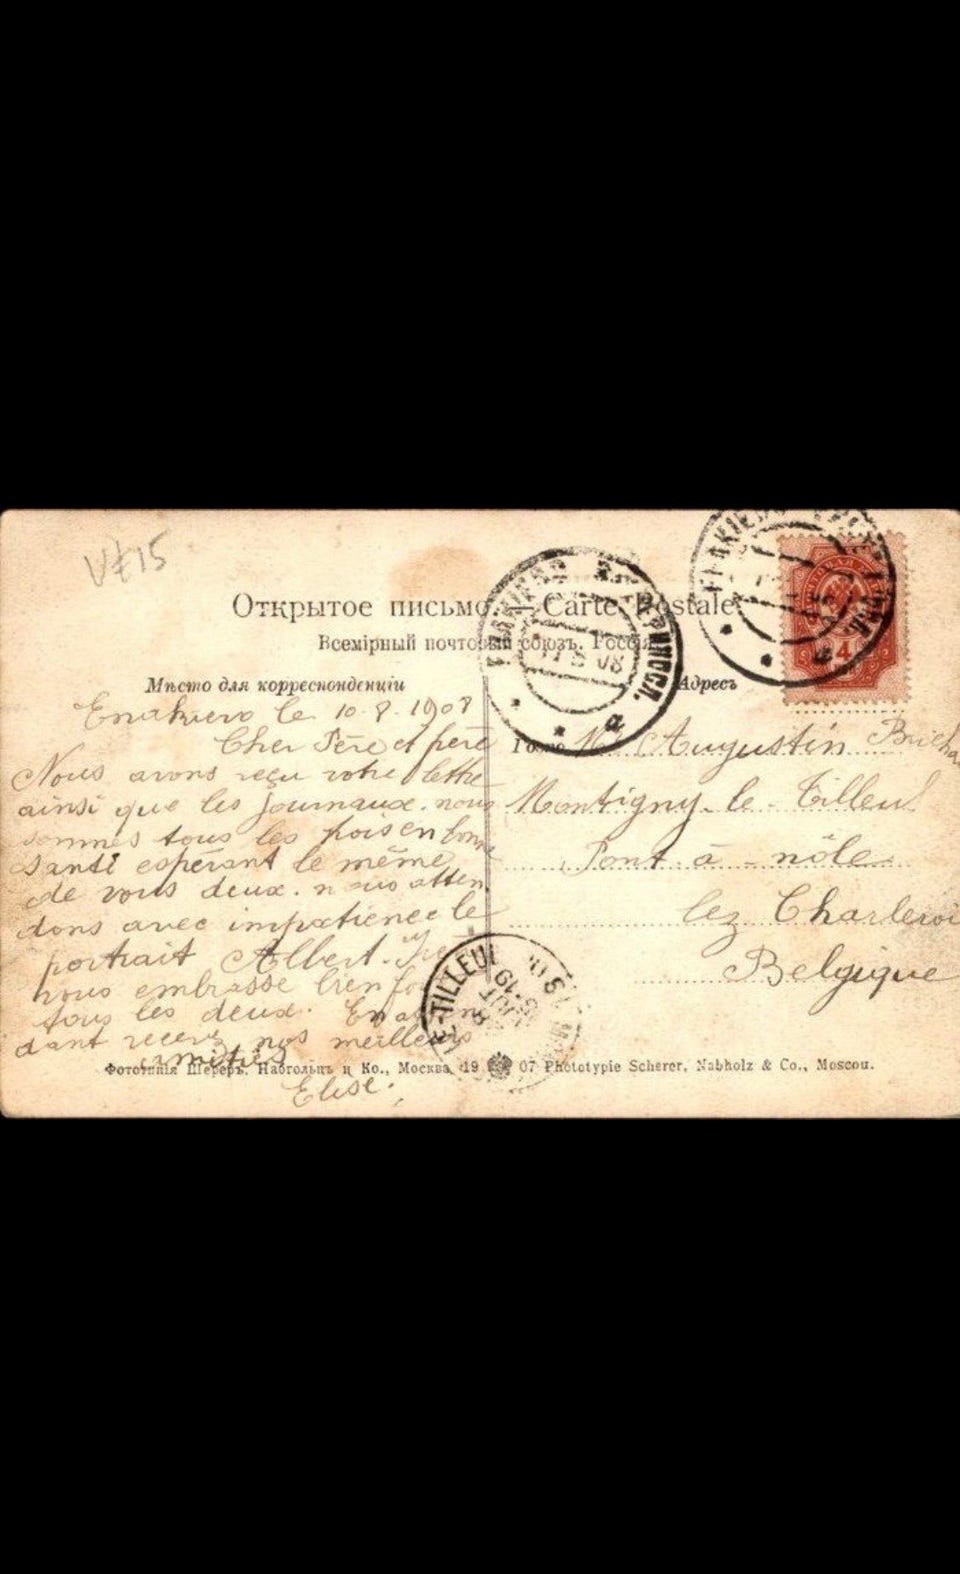 V≠15
Открытое письмо. — Carte Postale.
Всемірный почтовый союзъ. Россія.
Мѣсто для корреспонденціи
Адресъ
08
a
4
Enakievo le 10-8-1908
Cher Père et père
Nous avons reçu votre lettre
ainsi que les journaux. nous
sommes tous les trois en bonne
santé espérant le même
de vous deux. nous atten
dons avec impatience le
portrait Albert.
vous embrasse bien fo
tous les deux. En a
dant recevez nos meilleurs
amitiés
Elise.
Mr Augustin
Montigny-le-Tilleul
Pont-à-nôle
lez Charleroi
Belgique
LE-TILLEUL
Фототипія Шереръ, Набгольцъ и Ко., Москва. 19 07 Phototypie Scherer, Nabholz & Co., Moscou.